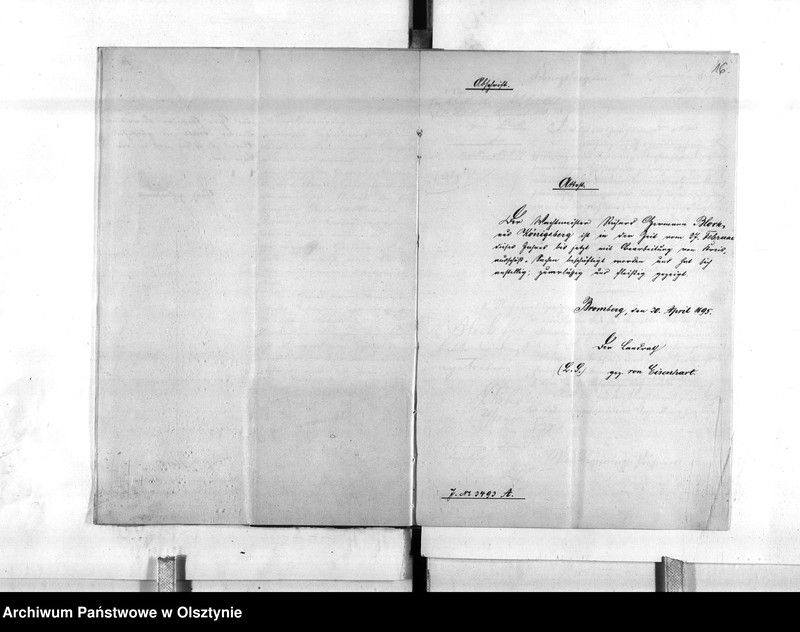 16.
Abschrift.
Attest.
Der Wachtmeister Richard Hermann Block,
aus Königsberg ist in der Zeit vom 27. Februar
dieses Jahres bis jetzt mit Bearbeitung von Kreis-
ausschuß-Sachen beschäftigt worden und hat sich
anstellig, zuverlässig und fleißig gezeigt.
Bromberg, den 20. April 1895.
Der Landrath
(L. S.) gez. von Eisenhart.
J. No. 3493 A.
Archiwum Państwowe w Olsztynie